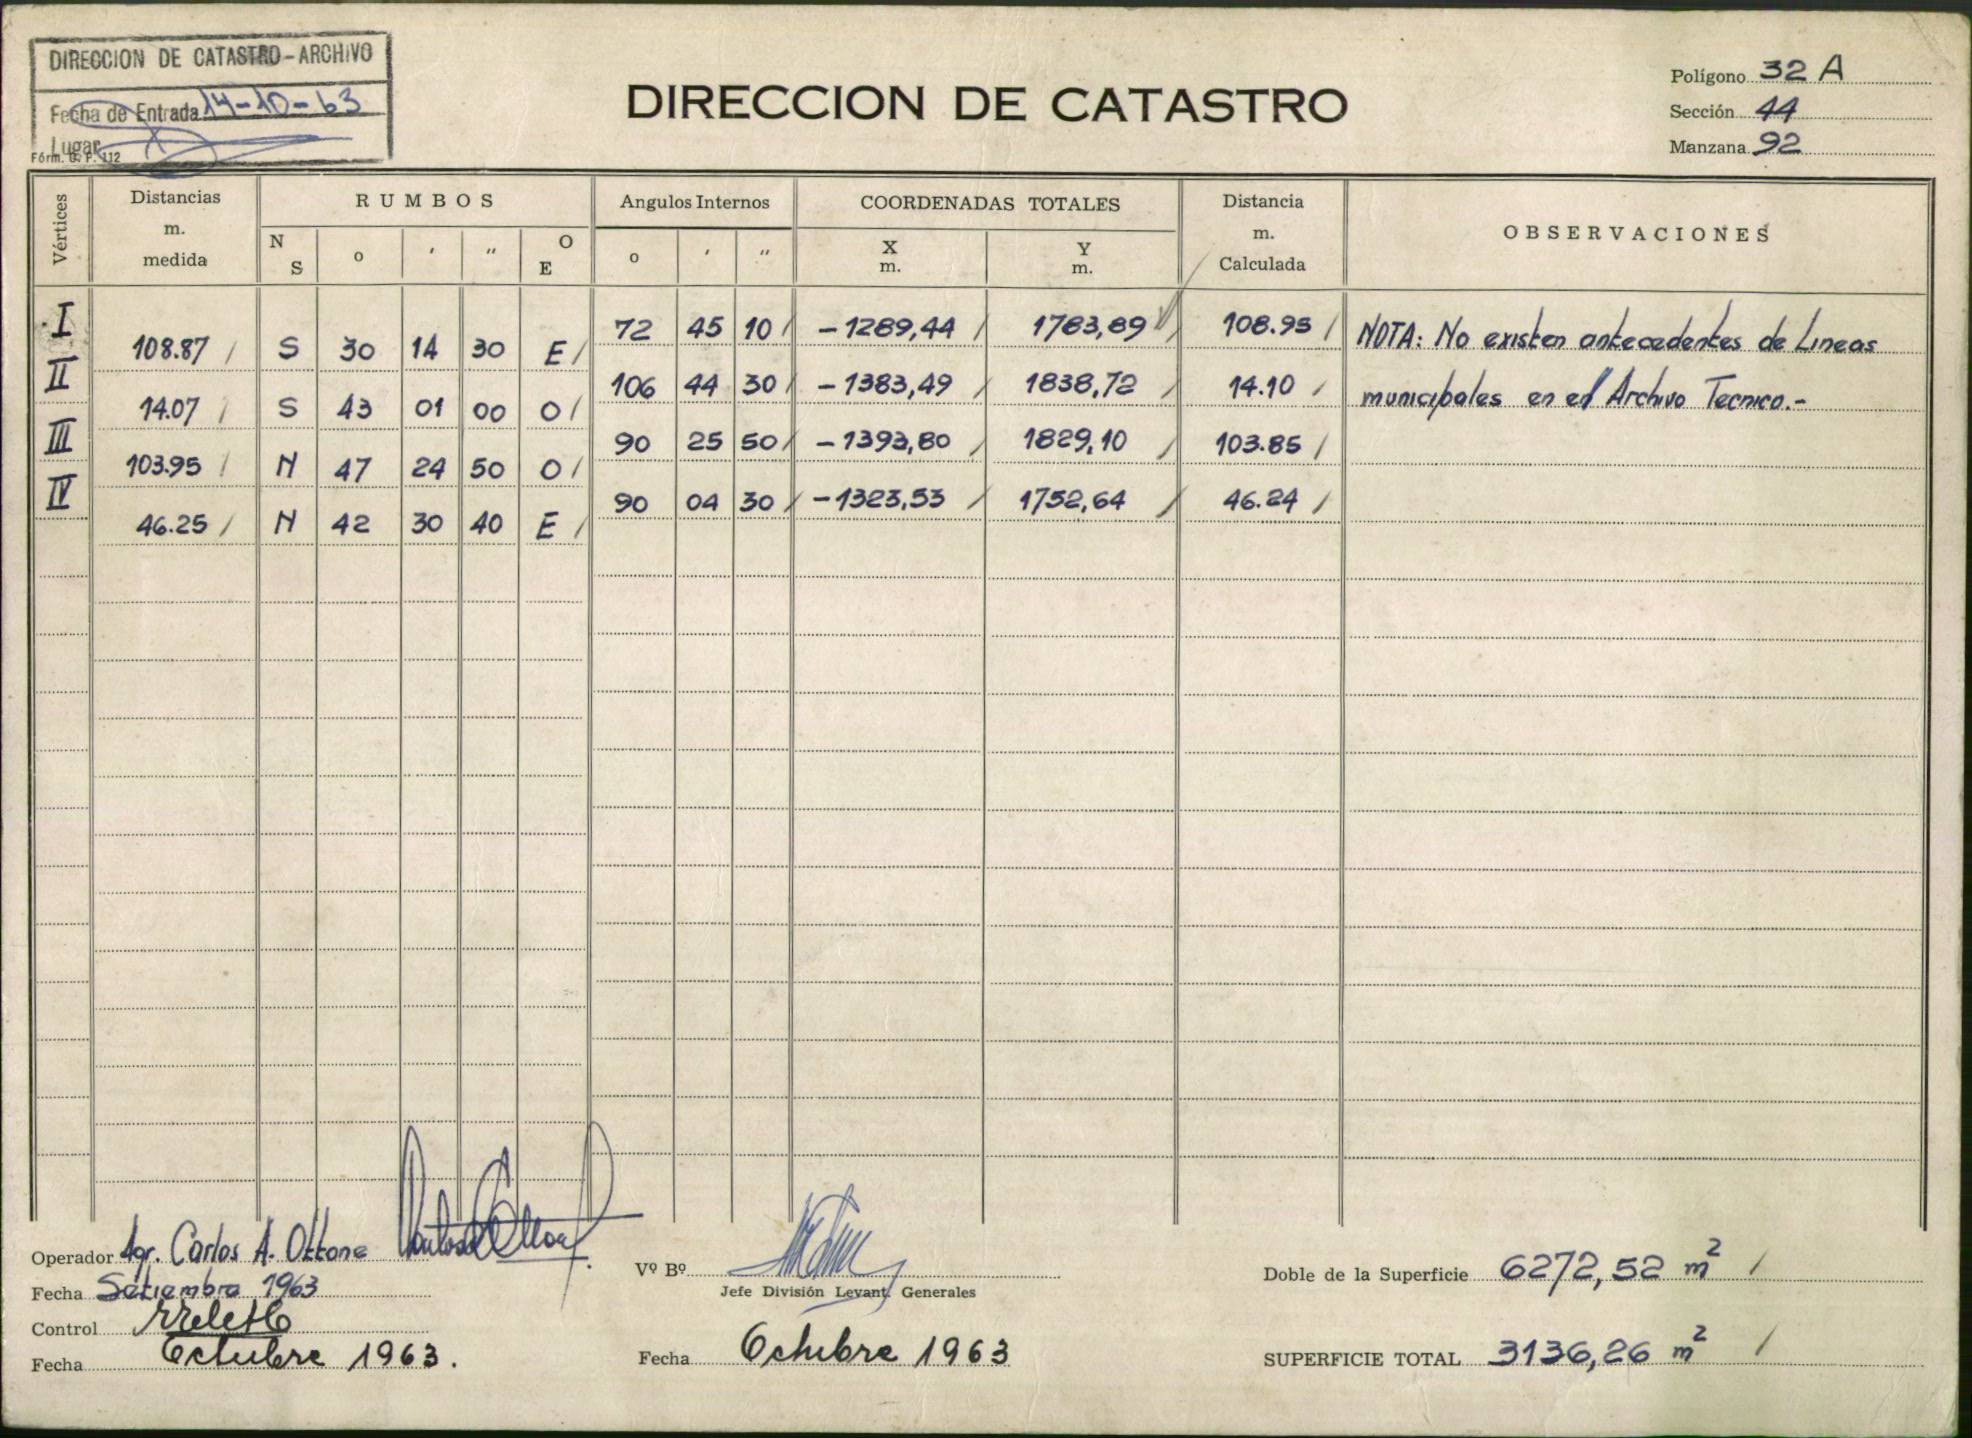 DIRECCION DE CATASTRO-ARCHIVO
Fecha de Entrada 14-10-63
Lugar
Fórm. G. P. 112
DIRECCION DE CATASTRO
Polígono 32 A
Sección 44
Manzana 92
Vértices Distancias m. medida RUMBOS Angulos Internos COORDENADAS TOTALES Distancia m. Calculada OBSERVACIONES
N S o ′ ″ O E o ′ ″ X m. Y m.
I 72 45 10 -1289,44 1783,89 108.95 NOTA: No existen antecedentes de Lineas
108.87 S 30 14 30 E
II 106 44 30 -1383,49 1838,72 14.10 municipales en el Archivo Tecnico.-
14.07 S 43 01 00 O
III 90 25 50 -1393,80 1829,10 103.85
103.95 N 47 24 50 O
IV 90 04 30 -1323,53 1752,64 46.24
46.25 N 42 30 40 E
Operador Agr. Carlos A. Ottone
Fecha Setiembre 1963
Control
Fecha Octubre 1963.
Vº Bº
Jefe División Levant. Generales
Fecha Octubre 1963
Doble de la Superficie 6272,52 m²
SUPERFICIE TOTAL 3136,26 m²